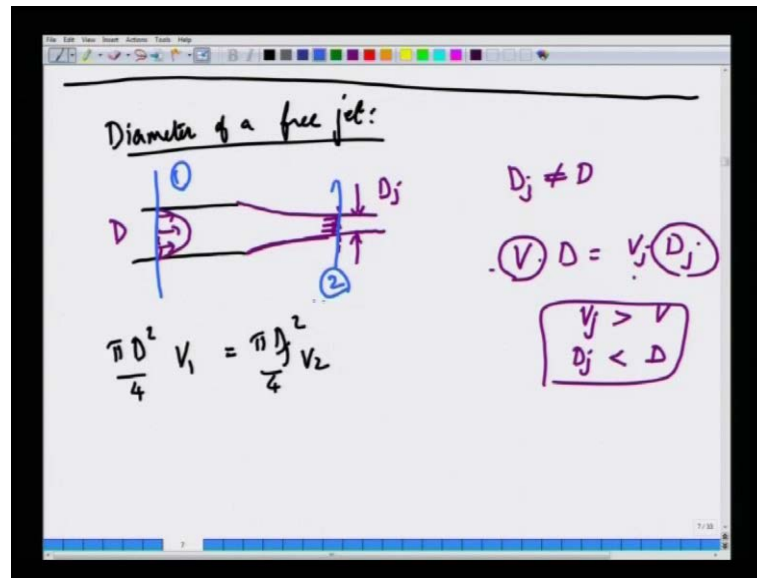 File Edit View Insert Actions Tools Help
B I
Diameter of a free jet:
① D_j
D D_j ≠ D
V D = V_j D_j
②
V_j > V
D_j < D
πD²/4 V₁ = πD_j²/4 V₂
7/33
7